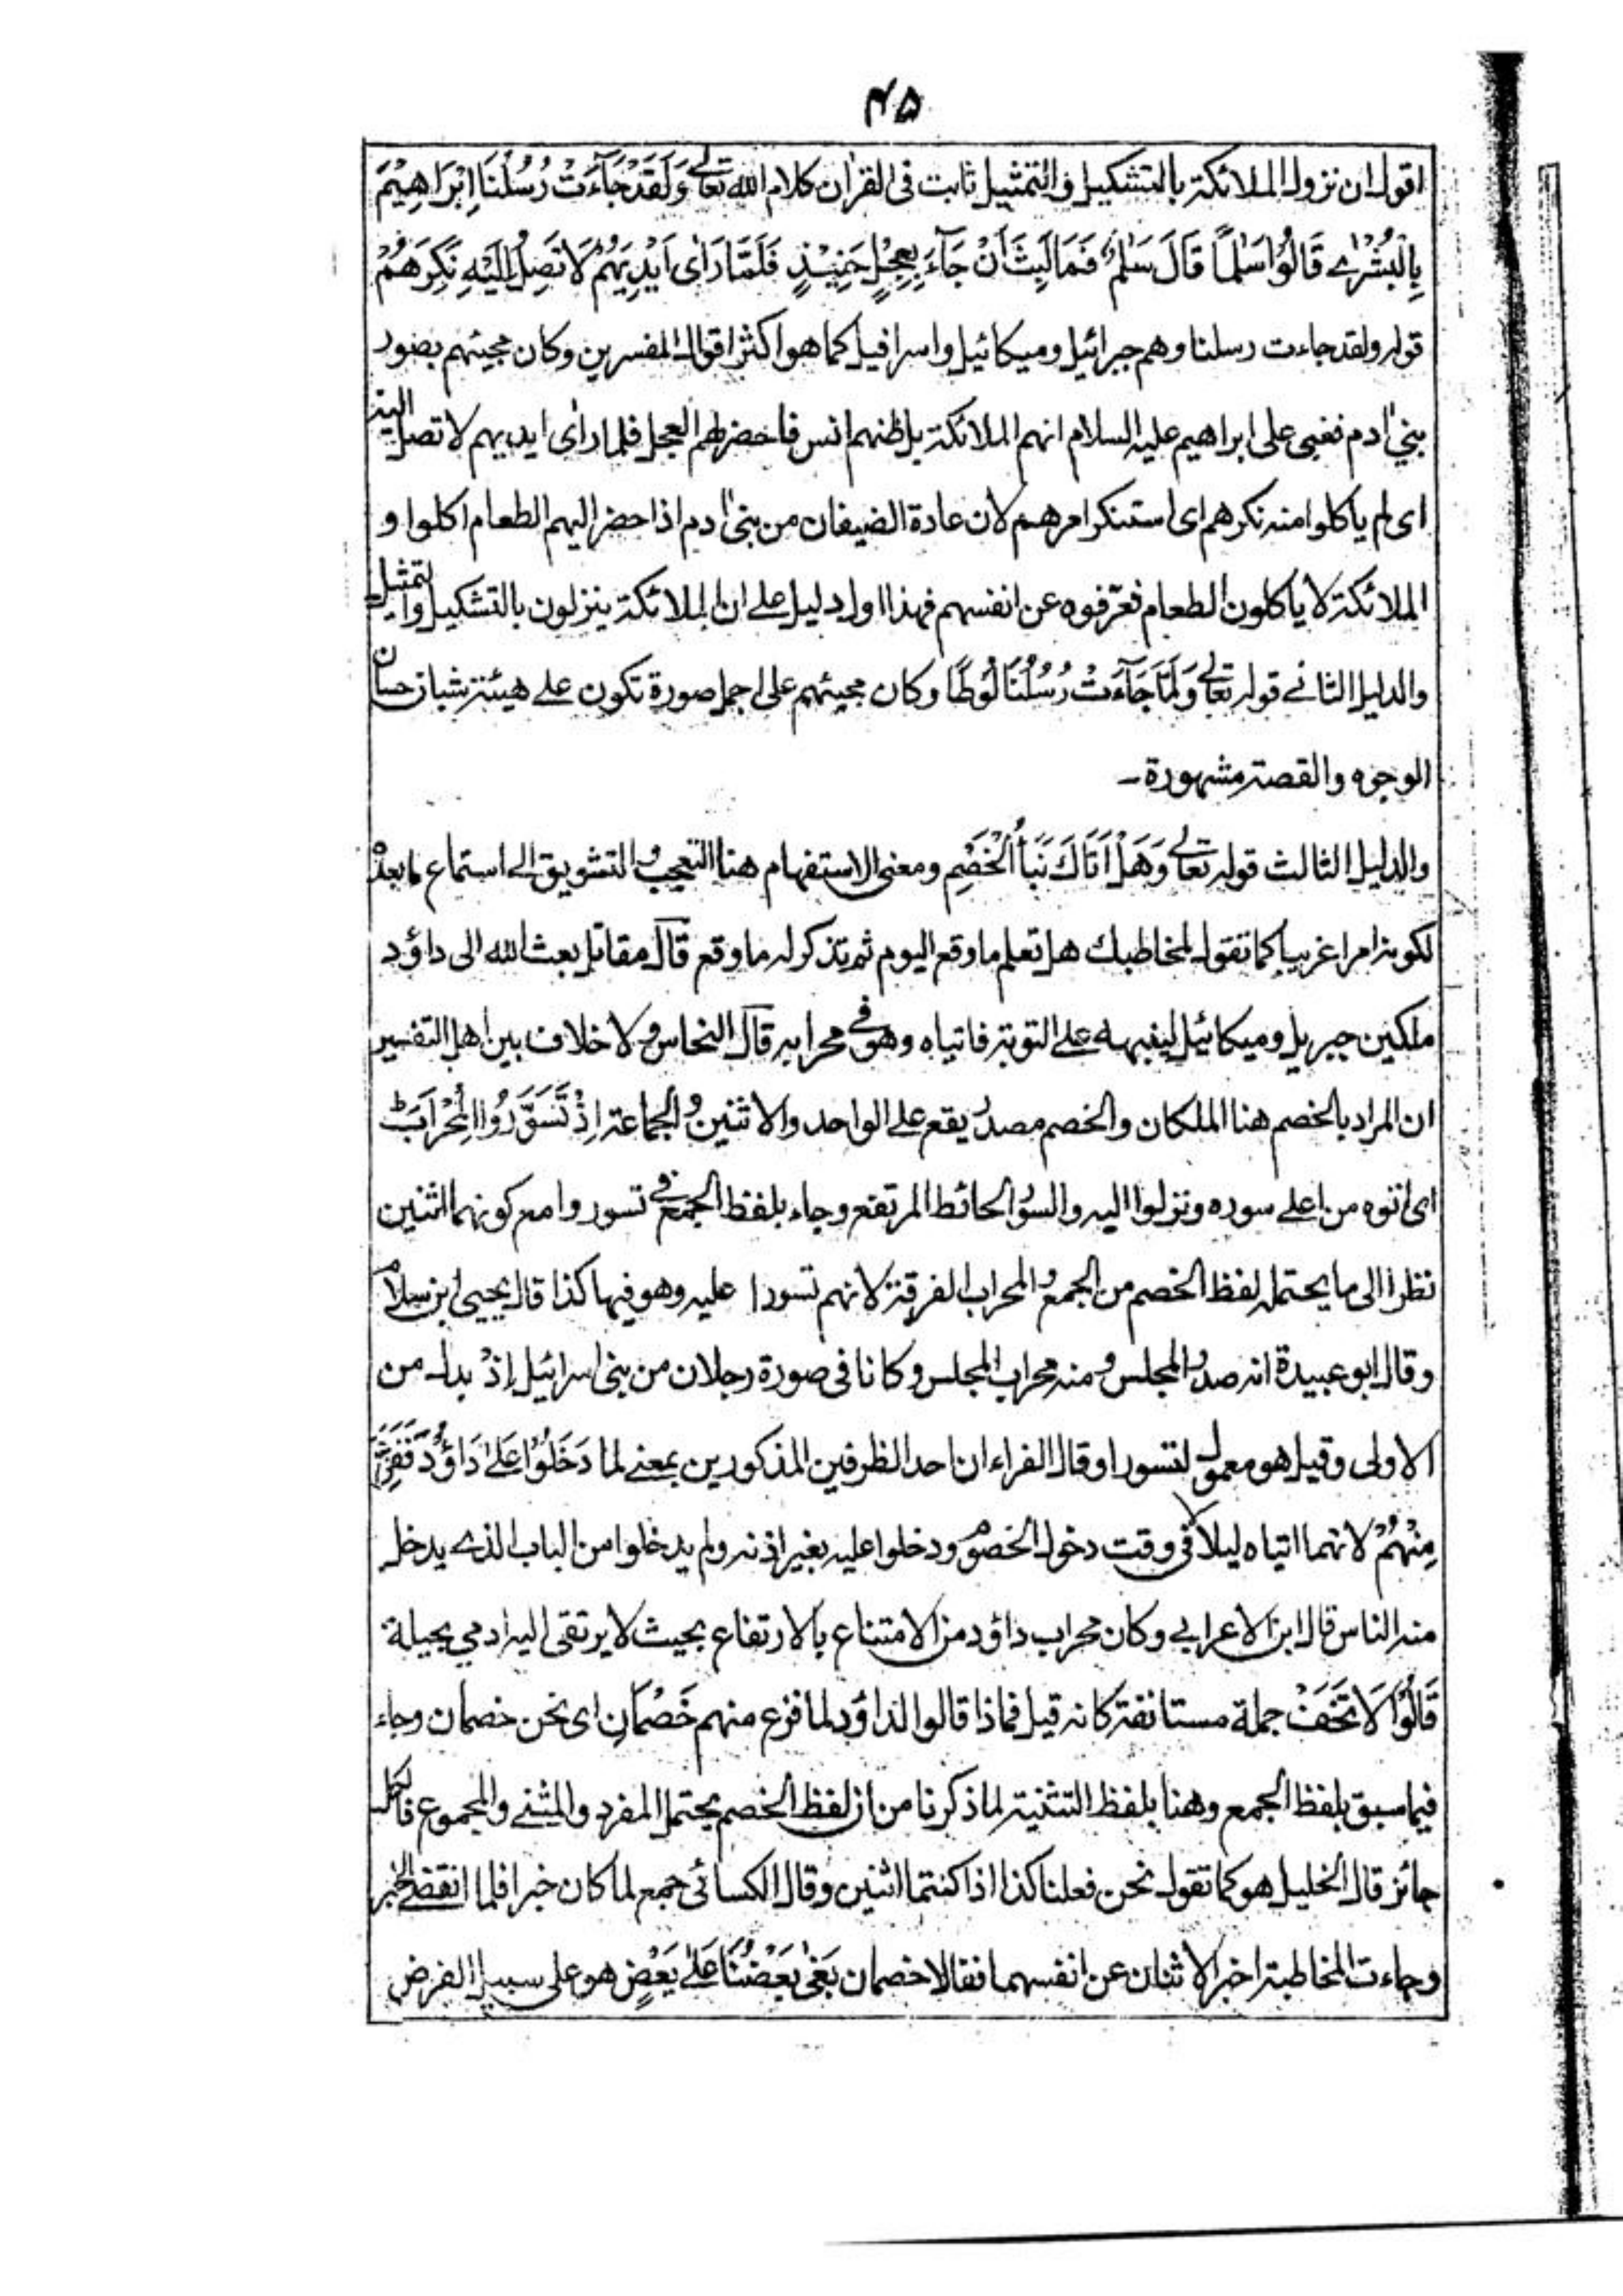 ۴۵
اقول ان نزول الملائكة بالتشكيل والتمثيل ثابت فى القرآن كلام الله تعالے وَلَقَدْ جَآءَتْ رُسُلُنَا اِبْرَاهِيْمَ
بِالْبُشْرٰے قَالُوْا سَلٰمًا قَالَ سَلٰمٌ فَمَا لَبِثَ اَنْ جَآءَ بِعِجْلٍ حَنِيْذٍ فَلَمَّا رَاٰى اَيْدِيَهُمْ لَا تَصِلُ اِلَيْهِ نَكِرَهُمْ
قوله ولقد جاءت رسلنا وهم جبرائيل وميكائيل واسرافيل كما هو اكثر اقوال المفسرين وكان مجيئهم بصور
بنى اٰدم فغبى على ابراهيم عليه السلام انهم الملائكة بل ظنهم انس فاحضر لهم العجل فلما راٰى ايديهم لا تصل اليه
اى لم ياكلوا منه نكرهم اى استنكر امرهم لان عادة الضيفان من بنى اٰدم اذا حضر اليهم الطعام اكلوا و
الملائكة لا ياكلون الطعام فعرّفوه عن انفسهم فهذا اول دليل على ان الملائكة ينزلون بالتشكيل والتمثيل
والدليل الثانے قوله تعالے وَلَمَّا جَآءَتْ رُسُلُنَا لُوْطًا وكان مجيئهم على اجمل صورة تكون علے هيئة شبان حسان
الوجوه والقصة مشهورة ـ
والدليل الثالث قوله تعالے وَهَلْ اَتَاكَ نَبَأُ الْخَصْمِ ومعنى الاستفهام هنا التعجيب والتشويق الے استماع ما بعده
لكونه امرا غريبا كما تقول لمخاطبك هل تعلم ما وقع اليوم ثم تذكر له ما وقع قال مقاتل بعث الله الى داؤد
ملكين جبريل وميكائيل لينبهه علے التوبة فاتياه وهو فے محرابه قال النحاس ولا خلاف بين اهل التفسير
ان المراد بالخصم هنا الملكان والخصم مصدر يقع علے الواحد والاثنين والجماعة اِذْ تَسَوَّرُوا الْمِحْرَابَ
اى اتوه من اعلے سوره ونزلوا اليه والسور الحائط المرتفع وجاء بلفظ الجمع فے تسوروا مع كونهما اثنين
نظرا الى ما يحتمله لفظ الخصم من الجمع والمحراب الغرفة لانهم تسورا عليه وهو فيها كذا قال يحيى ابن سلام
وقال ابو عبيدة انه صدر المجلس ومنه محراب المجلس وكانا فى صورة رجلان من بنى اسرائيل إذْ بدل من
الاولى وقيل هو معمول لتسورا وقال الفراء ان احد الظرفين المذكورين بمعنے لما دَخَلُوْا عَلٰے دَاؤُدَ فَفَزِعَ
مِنْهُمْ لانهما اتياه ليلا فى وقت دخول الخصوم ودخلوا عليه بغير اذنه ولم يدخلوا من الباب الذے يدخل
منه الناس قال ابن الاعرابے وكان محراب داؤد من الامتناع بالارتفاع بحيث لا يرتقى اليه ادمي بحيلة
قَالُوْا لَا تَخَفْ جملة مستانفة كانه قيل فماذا قالوا لداؤد لما فزع منهم خَصْمَانِ اى نحن خصمان وجاء
فيما سبق بلفظ الجمع وهنا بلفظ التثنية لما ذكرنا من ان لفظ الخصم يحتمل المفرد والمثنے والمجموع فالكل
جائز قال الخليل هو كما تقول نحن فعلنا كذا اذا كنتما اثنين وقال الكسائى جمع لما كان خبرا فلما انقضے الخبر
وجاءت المخاطبة اخبر الاثنان عن انفسهما فقالا خصمان بَغٰى بَعْضُنَا عَلٰے بَعْضٍ هو على سبيل الفرض